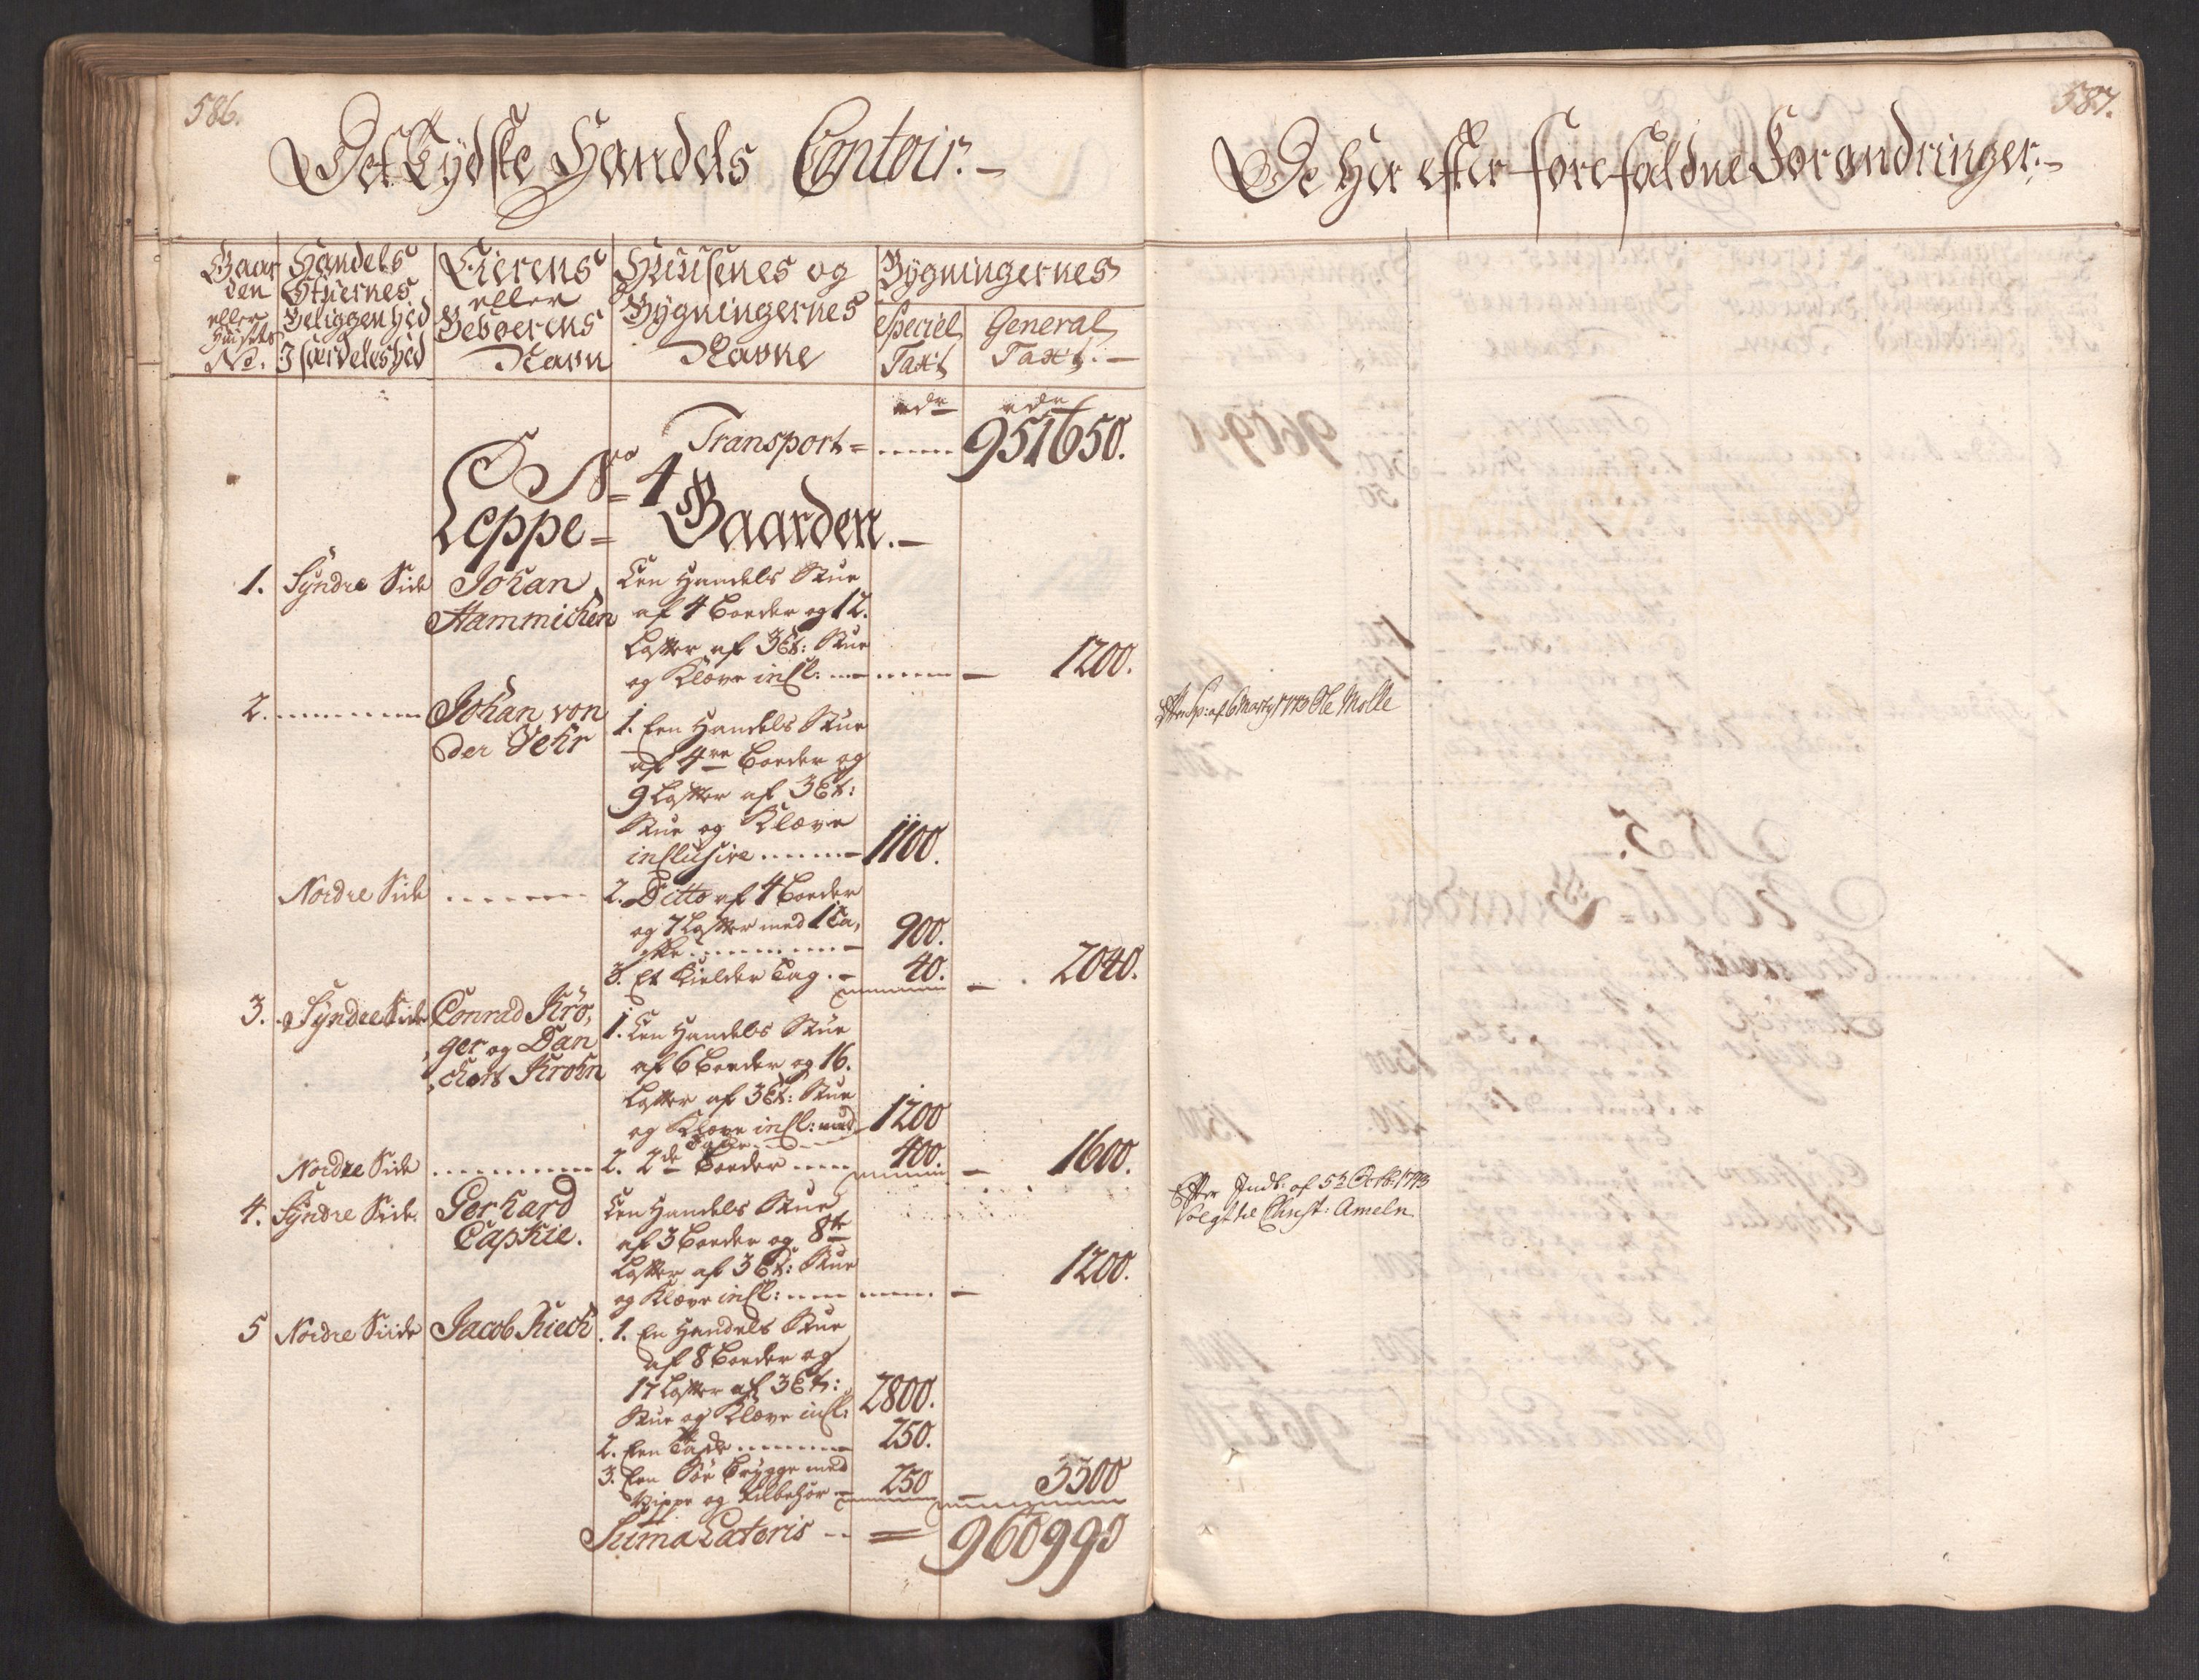 586.
Det Tydske Handels Contoir.-
Gaar
den
eller
Huusets
No.
Handels
Stuernes
Beliggenhed
I særdeleshed
Eierens
eller
Beboerens
Navn
Huusenes og
Bygningernes
Navne
Bygningernes
Speciel
Taxt
General
Taxt.-
rdr
rdr
Transport = 951650.
No 4
Leppe= Gaarden.-
1. Syndre Side Johan Een Handels Stue
Hammichen af 4 Boeder og 12.
Lofter af 3 Et: Stue
og Klæve incl: 1200.
2. Johan von 1. Een Handels Stue
der Vehr af 4re Boeder og
9 Lofter af 3 Et:
Stue og Klæve
inclusive 1100.
Nordre Side 2. Ditto af 4 Boeder
og 7 Lofter med 1 Ta,
900.
3. Et Kielder Tag.- 40. 2040.
3. Syndre Side Conrad Krø, 1. Een Handels Stue
ger og Dan af 6 Boeder og 16.
chert Krohn Lofter af 3 Et: Stue
og Klæve incl: med 1200
Nordre Side 2. 2de Boeder 400. 1600.
4. Syndre Side. Gerhard Een Handels Stue
Tapkie. af 3 Boeder og 8te
Lofter af 3 Et: Stue
og Klæve incl: 1200.
5 Nordre Siide Jacob Kiech 1. En Handels Stue
af 8 Boeder og
17 Lofter af 3 Et:
Stue og Klæve incl: 2800.
2. Een 250.
3. Een Søe Brygge med
Vippe og tilbehør 250 3300
Suma Lateris = 960990
587.
De Her efter forefaldne Forandringer.-
af 6 Marty 1743 Ole Molle
Efter Indb: af 5t Octb: 1743
solgt til Christ: Ameln